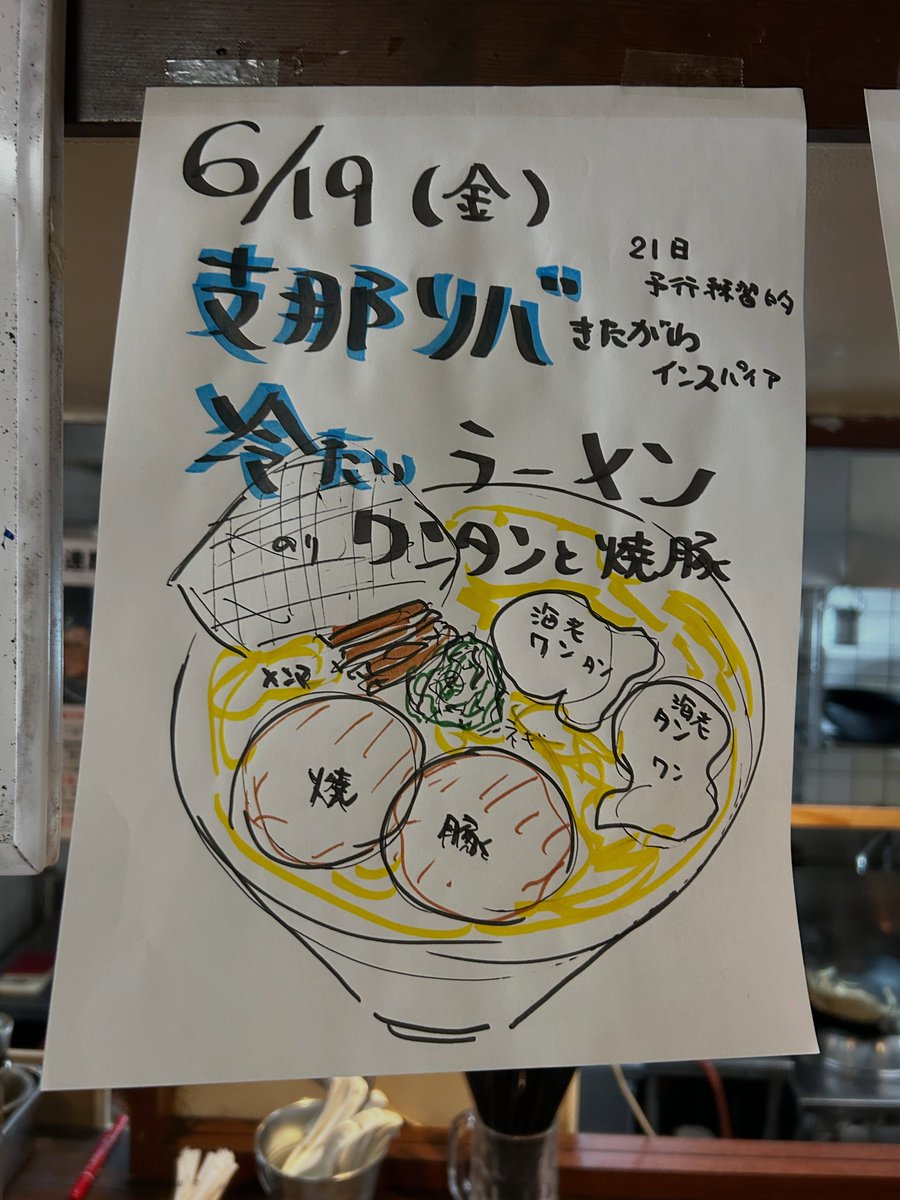 6/19(金)
支那リバ
21日
予行練習的
きたがわ
インスパイア
冷たい ラーメン
ワンタンと焼豚
のり
メンマ
ネギ
海老
ワンタン
海老
タン
ワン
焼
豚